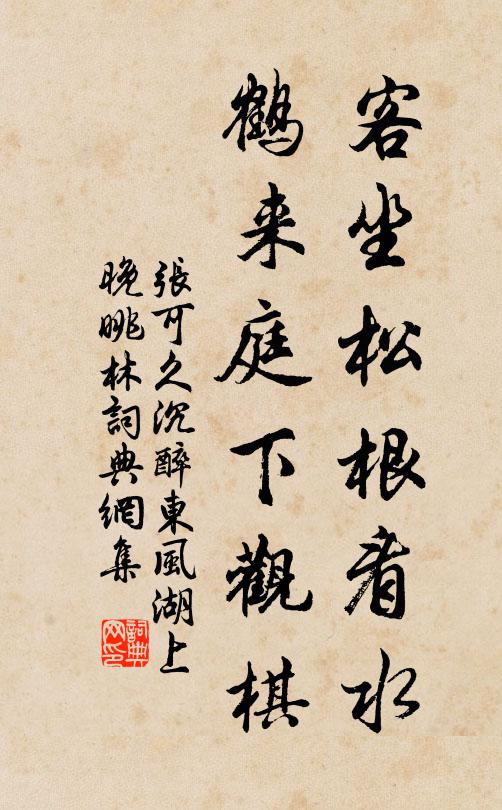 客坐松根看水
鹤来庭下觀棋
張可久沉醉東風湖上
晚眺林詞典網集
詞典网印